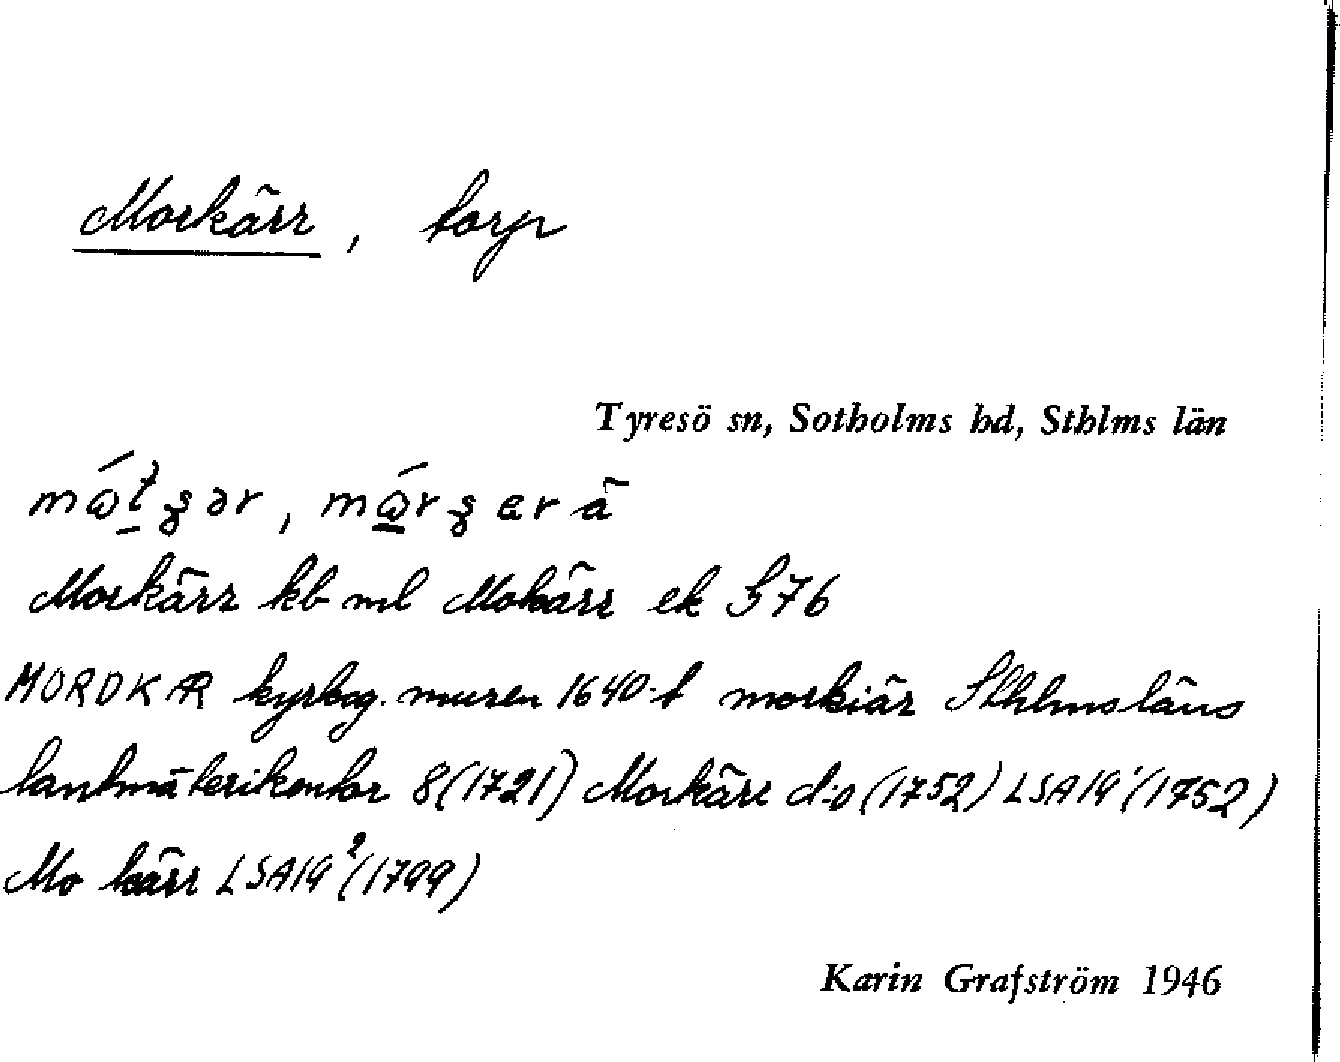 Morkärr, torp
Tyresö sn, Sotholms hd, Sthlms län
Morkärr kb ml Mokärr ek S76
MORDKÆR kyrkog. muren 1640-t morkiär Sthlms läns
lantmäterikontor 8(1721) Morkärr d:o (1752) LSA19¹(1752)
Mo kärr LSA19²(1799)
Karin Grafström 1946